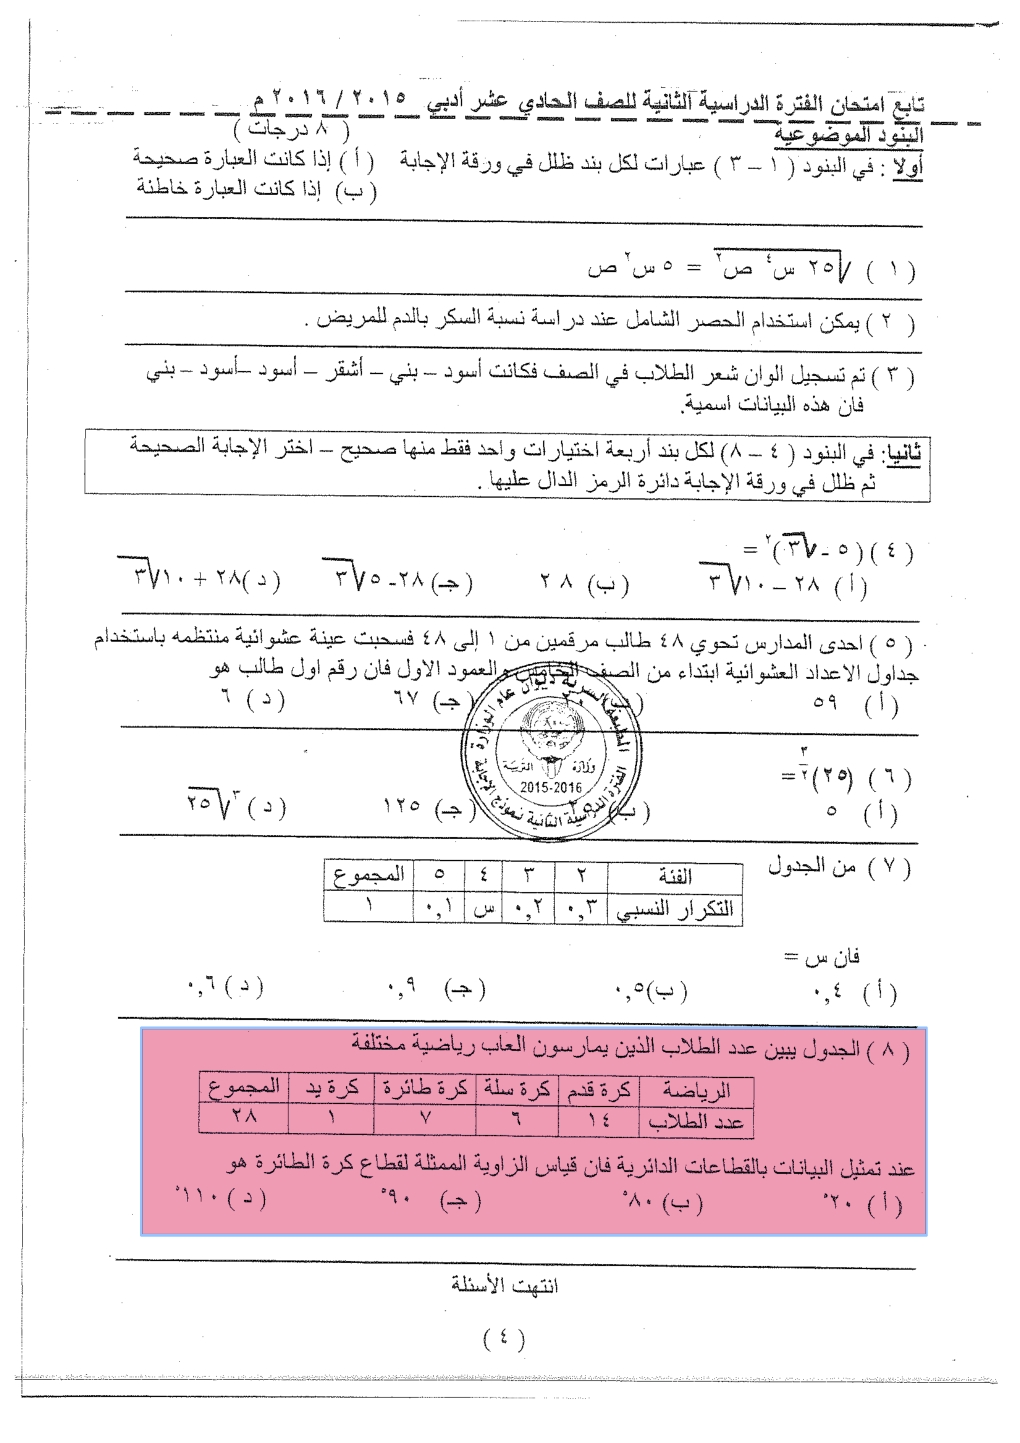 تابع امتحان الفترة الدراسية الثانية للصف الحادي عشر أدبي ٢٠١٥ / ٢٠١٦ م
البنود الموضوعية ( ٨ درجات )
أولا : في البنود ( ١ – ٣ ) عبارات لكل بند ظلل في ورقة الإجابة ( أ ) إذا كانت العبارة صحيحة
( ب ) إذا كانت العبارة خاطئة
( ١ ) √٢٥ س⁴ ص² = ٥ س² ص
( ٢ ) يمكن استخدام الحصر الشامل عند دراسة نسبة السكر بالدم للمريض .
( ٣ ) تم تسجيل الوان شعر الطلاب في الصف فكانت أسود – بني – أشقر – أسود –أسود – بني
فان هذه البيانات اسمية.
ثانيا: في البنود ( ٤ – ٨ ) لكل بند أربعة اختيارات واحد فقط منها صحيح – اختر الإجابة الصحيحة
ثم ظلل في ورقة الإجابة دائرة الرمز الدال عليها .
( ٤ ) (٥ - √٣)² =
( أ ) ٢٨ – ١٠√٣ ( ب ) ٢٨ ( جـ ) ٢٨- ٥√٣ ( د ) ٢٨ + ١٠√٣
( ٥ ) احدى المدارس تحوي ٤٨ طالب مرقمين من ١ إلى ٤٨ فسحبت عينة عشوائية منتظمه باستخدام
جداول الاعداد العشوائية ابتداء من الصف الخامس والعمود الاول فان رقم اول طالب هو
( أ ) ٥٩ ( ب ) ٢٠ ( جـ ) ٦٧ ( د ) ٦
المطبعة السرية ديوان عام الوزارة
وزارة التربية
2015-2016
الفترة الدراسية الثانية نموذج الإجابة
( ٦ ) (٢٥)^٣/٢ =
( أ ) ٥ ( ب ) ٢٥ ( جـ ) ١٢٥ ( د ) ³√٢٥
( ٧ ) من الجدول
الفئة ٢ ٣ ٤ ٥ المجموع
التكرار النسبي ٠,٣ ٠,٢ س ٠,١ ١
فان س =
( أ ) ٠,٤ ( ب ) ٠,٥ ( جـ ) ٠,٩ ( د ) ٠,٦
( ٨ ) الجدول يبين عدد الطلاب الذين يمارسون العاب رياضية مختلفة
الرياضة كرة قدم كرة سلة كرة طائرة كرة يد المجموع
عدد الطلاب ١٤ ٦ ٧ ١ ٢٨
عند تمثيل البيانات بالقطاعات الدائرية فان قياس الزاوية الممثلة لقطاع كرة الطائرة هو
( أ ) ٢٠° ( ب ) ٨٠° ( جـ ) ٩٠° ( د ) ١١٠°
انتهت الأسئلة
( ٤ )